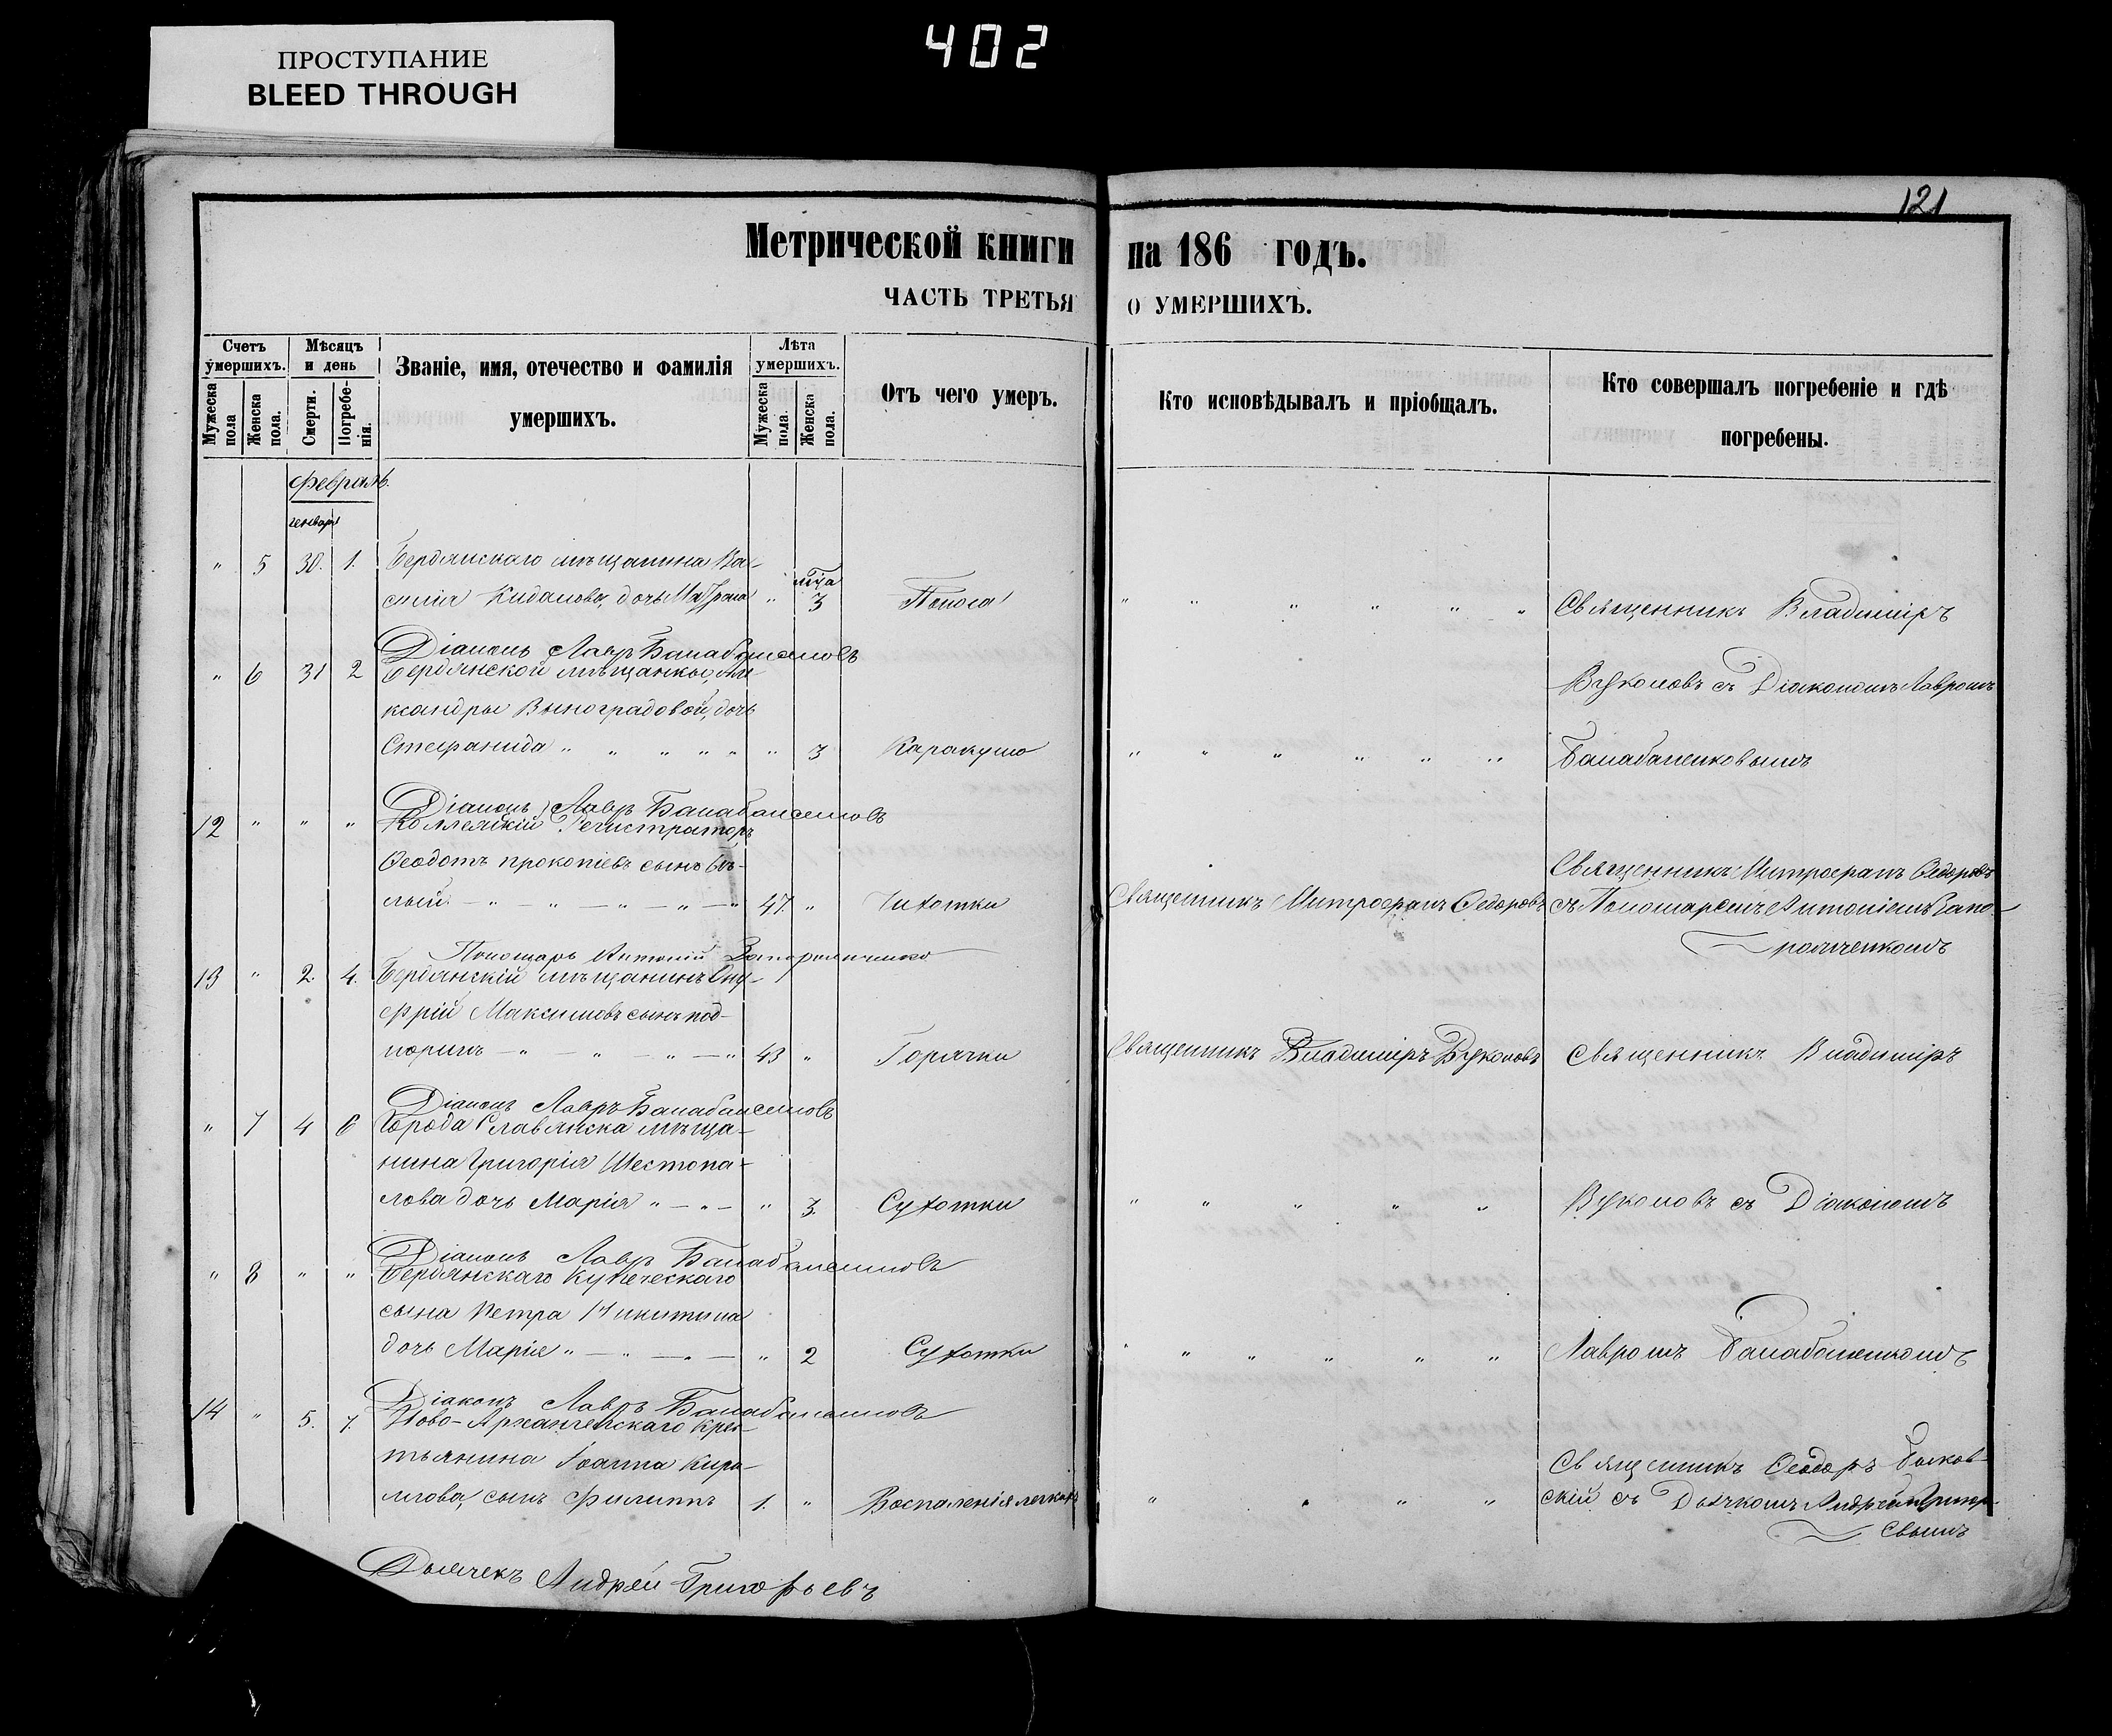 ПРОСТУПАНИЕ
BLEED THROUGH
402
121
Метрической книги на 186 годъ.
ЧАСТЬ ТРЕТЬЯ О УМЕРШИХЪ.
Счетъ умершихъ.
Мужеска пола
Женска пола.
Мѣсяцъ и день
Смерти.
Погребенія.
Званіе, имя, отечество и фамилія умершихъ.
Лѣта умершихъ.
Мужеска пола.
Женска пола.
Отъ чего умеръ.
Кто исповѣдывалъ и пріобщалъ.
Кто совершалъ погребеніе и гдѣ погребены.
Февраль.
генваря
" 5 30. 1. Бердянскаго мѣщанина Ва-
силія дочь " мца 3 Поноса " " " " " " Священникъ Владиміръ
Діаконъ Лавръ
" 6 31 2 Бердянской мѣщанки
ксандры Виноградовой, дочь Вуколовъ съ Діакономъ Лавромъ
Стефанида " " " " " " 3 " " " " " "
Діаконъ Лавръ
12 " " " Коллежскій Регистраторъ
Ѳеодотъ прокопіевъ сынъ Бѣ- Священникъ Митрофанъ Ѳедоровъ
лый. — " — " — " — " — " 47. " Чахотки Священникъ Митрофанъ Ѳедоровъ съ Пономаремъ Антоніемъ
Пономарь Антоній
13 " 2. 4. Бердянскій мѣщанинъ Ону-
фрій Максимовъ сынъ под-
— " — " — " — " 43 " Горячки Священникъ Владиміръ Вуколовъ Священникъ Владиміръ
Діаконъ Лавръ
" 7 4 6 Города Славянска мѣща-
нина Григорія Шестопа-
лова дочь Марія " — " — " 3. Сухотки " " " " " Вуколовъ съ Діакономъ
Діаконъ Лавръ
" 8 " " Бердянскаго Купеческаго
сына Петра Никитина
дочь Марія " — " — " — " 2 Сухотки " " " " " " Лавромъ
Діаконъ Лавръ
14 " 5. 7. Ново-Архангельскаго крес-
тьянина Іоанна Кири- Священникъ Ѳеодоръ
лова, сынъ Филиппъ 1. " Воспаленія легкихъ " " " " скій съ Дьячкомъ Андреемъ Григорь-
евымъ
Дьячекъ Андрей Григорьевъ